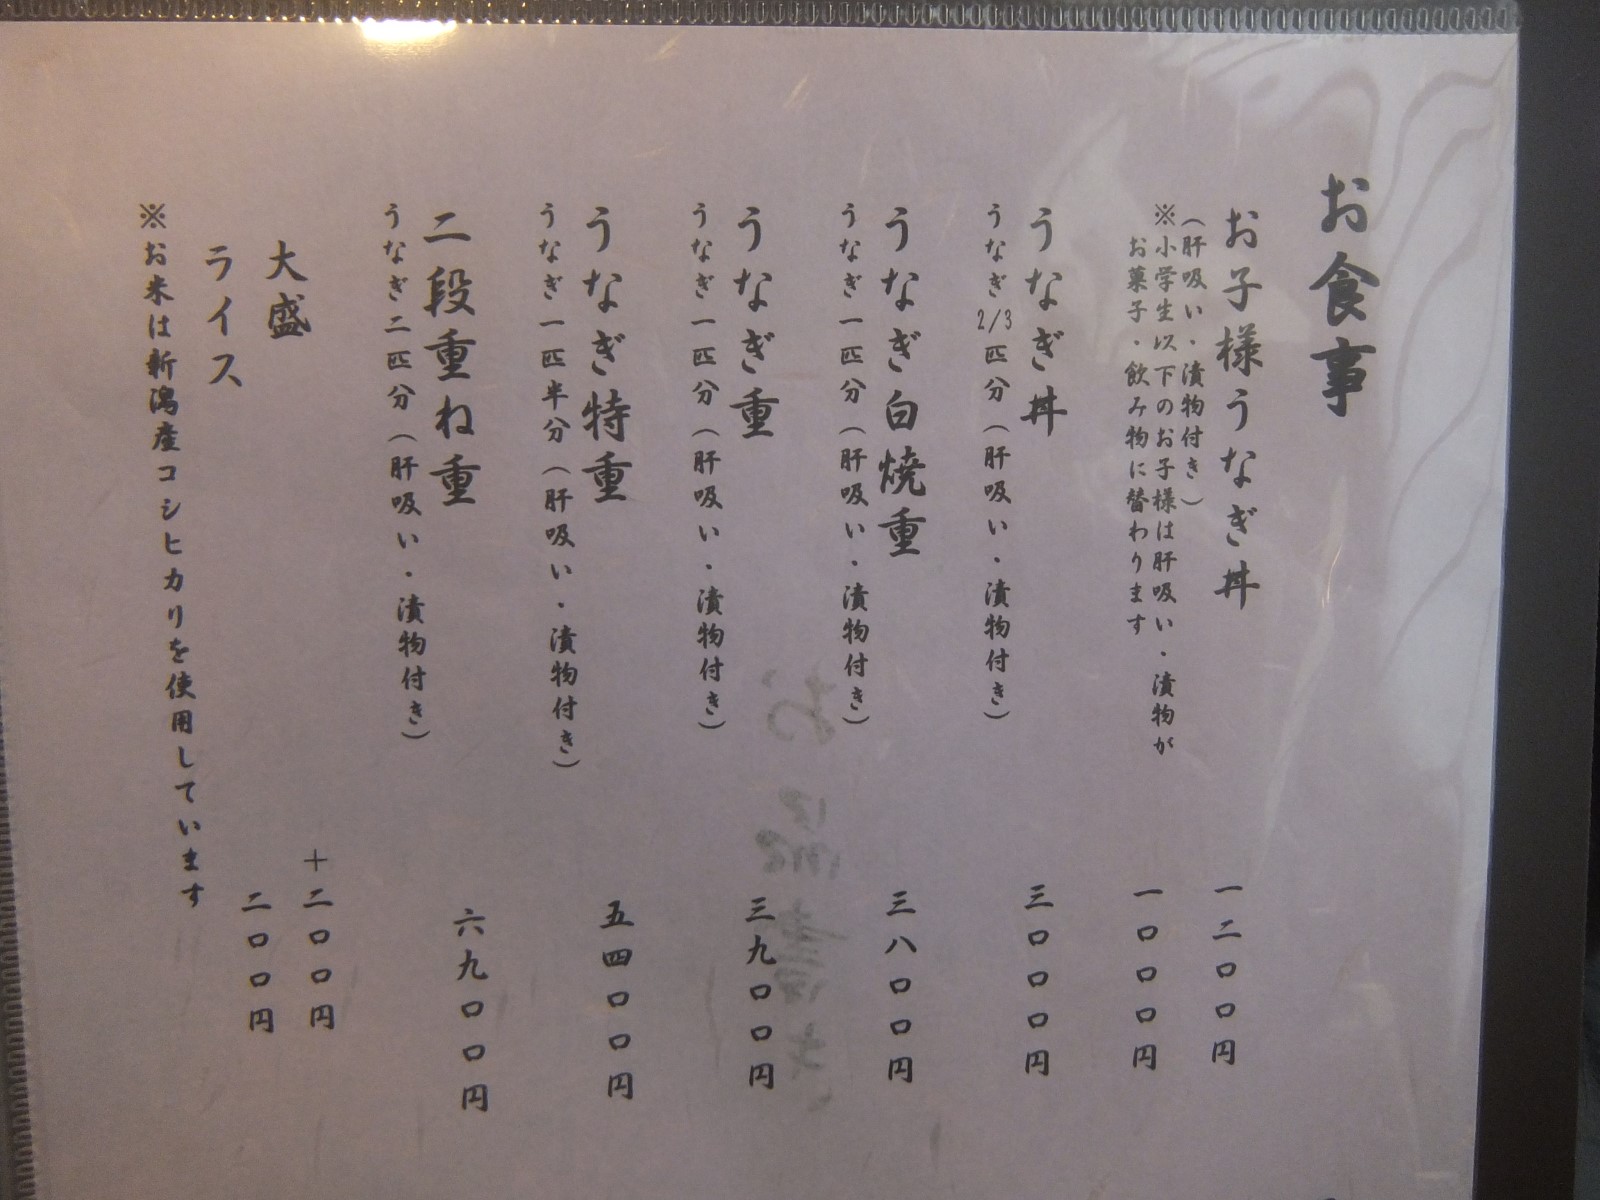 お食事
お子様うなぎ丼 一二〇〇円
（肝吸い・漬物付き）
※小学生以下のお子様は肝吸い・漬物が
お菓子・飲み物に替わります 一〇〇〇円
うなぎ丼 三〇〇〇円
うなぎ2/3匹分（肝吸い・漬物付き）
うなぎ白焼重 三八〇〇円
うなぎ一匹分（肝吸い・漬物付き）
うなぎ重 三九〇〇円
うなぎ一匹分（肝吸い・漬物付き）
うなぎ特重 五四〇〇円
うなぎ一匹半分（肝吸い・漬物付き）
二段重ね重 六九〇〇円
うなぎ二匹分（肝吸い・漬物付き）
大盛 ＋二〇〇円
ライス 二〇〇円
※お米は新潟産コシヒカリを使用しています